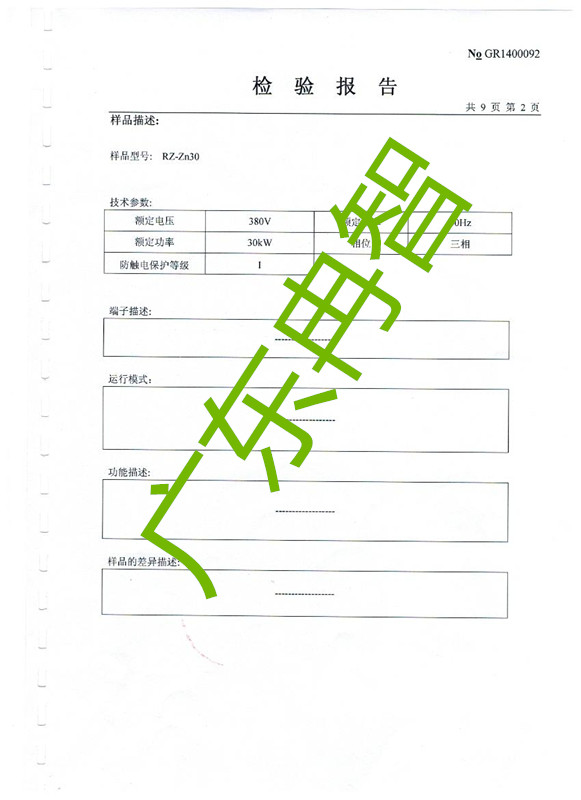 No GR1400092
检 验 报 告
共 9 页 第 2 页
样品描述:
样品型号: RZ-Zn30
技术参数:
额定电压 380V 0Hz
额定功率 30kW 相位 三相
防触电保护等级 I
端子描述:
------------------
运行模式:
------------------
功能描述:
------------------
样品的差异描述:
------------------
广东冉智